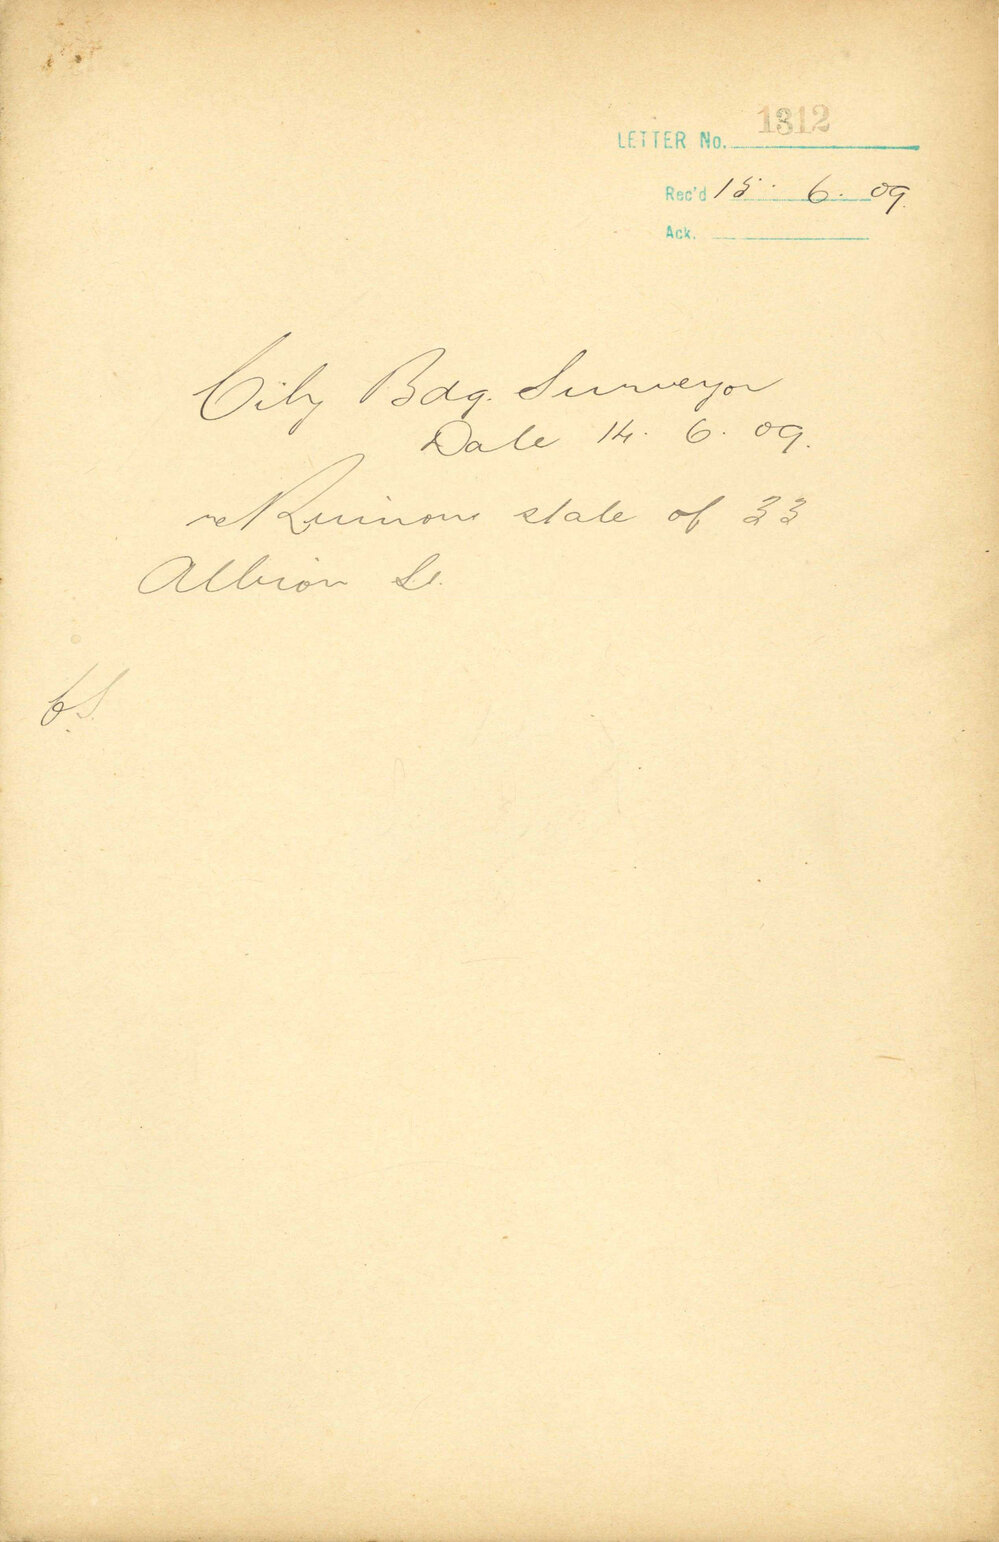 1312
LETTER No.
Rec'd 15. 6. 09.
Ack.
City Bdg. Surveyor
Date 14. 6. 09.
re Ruinous state of 33
Albion St.